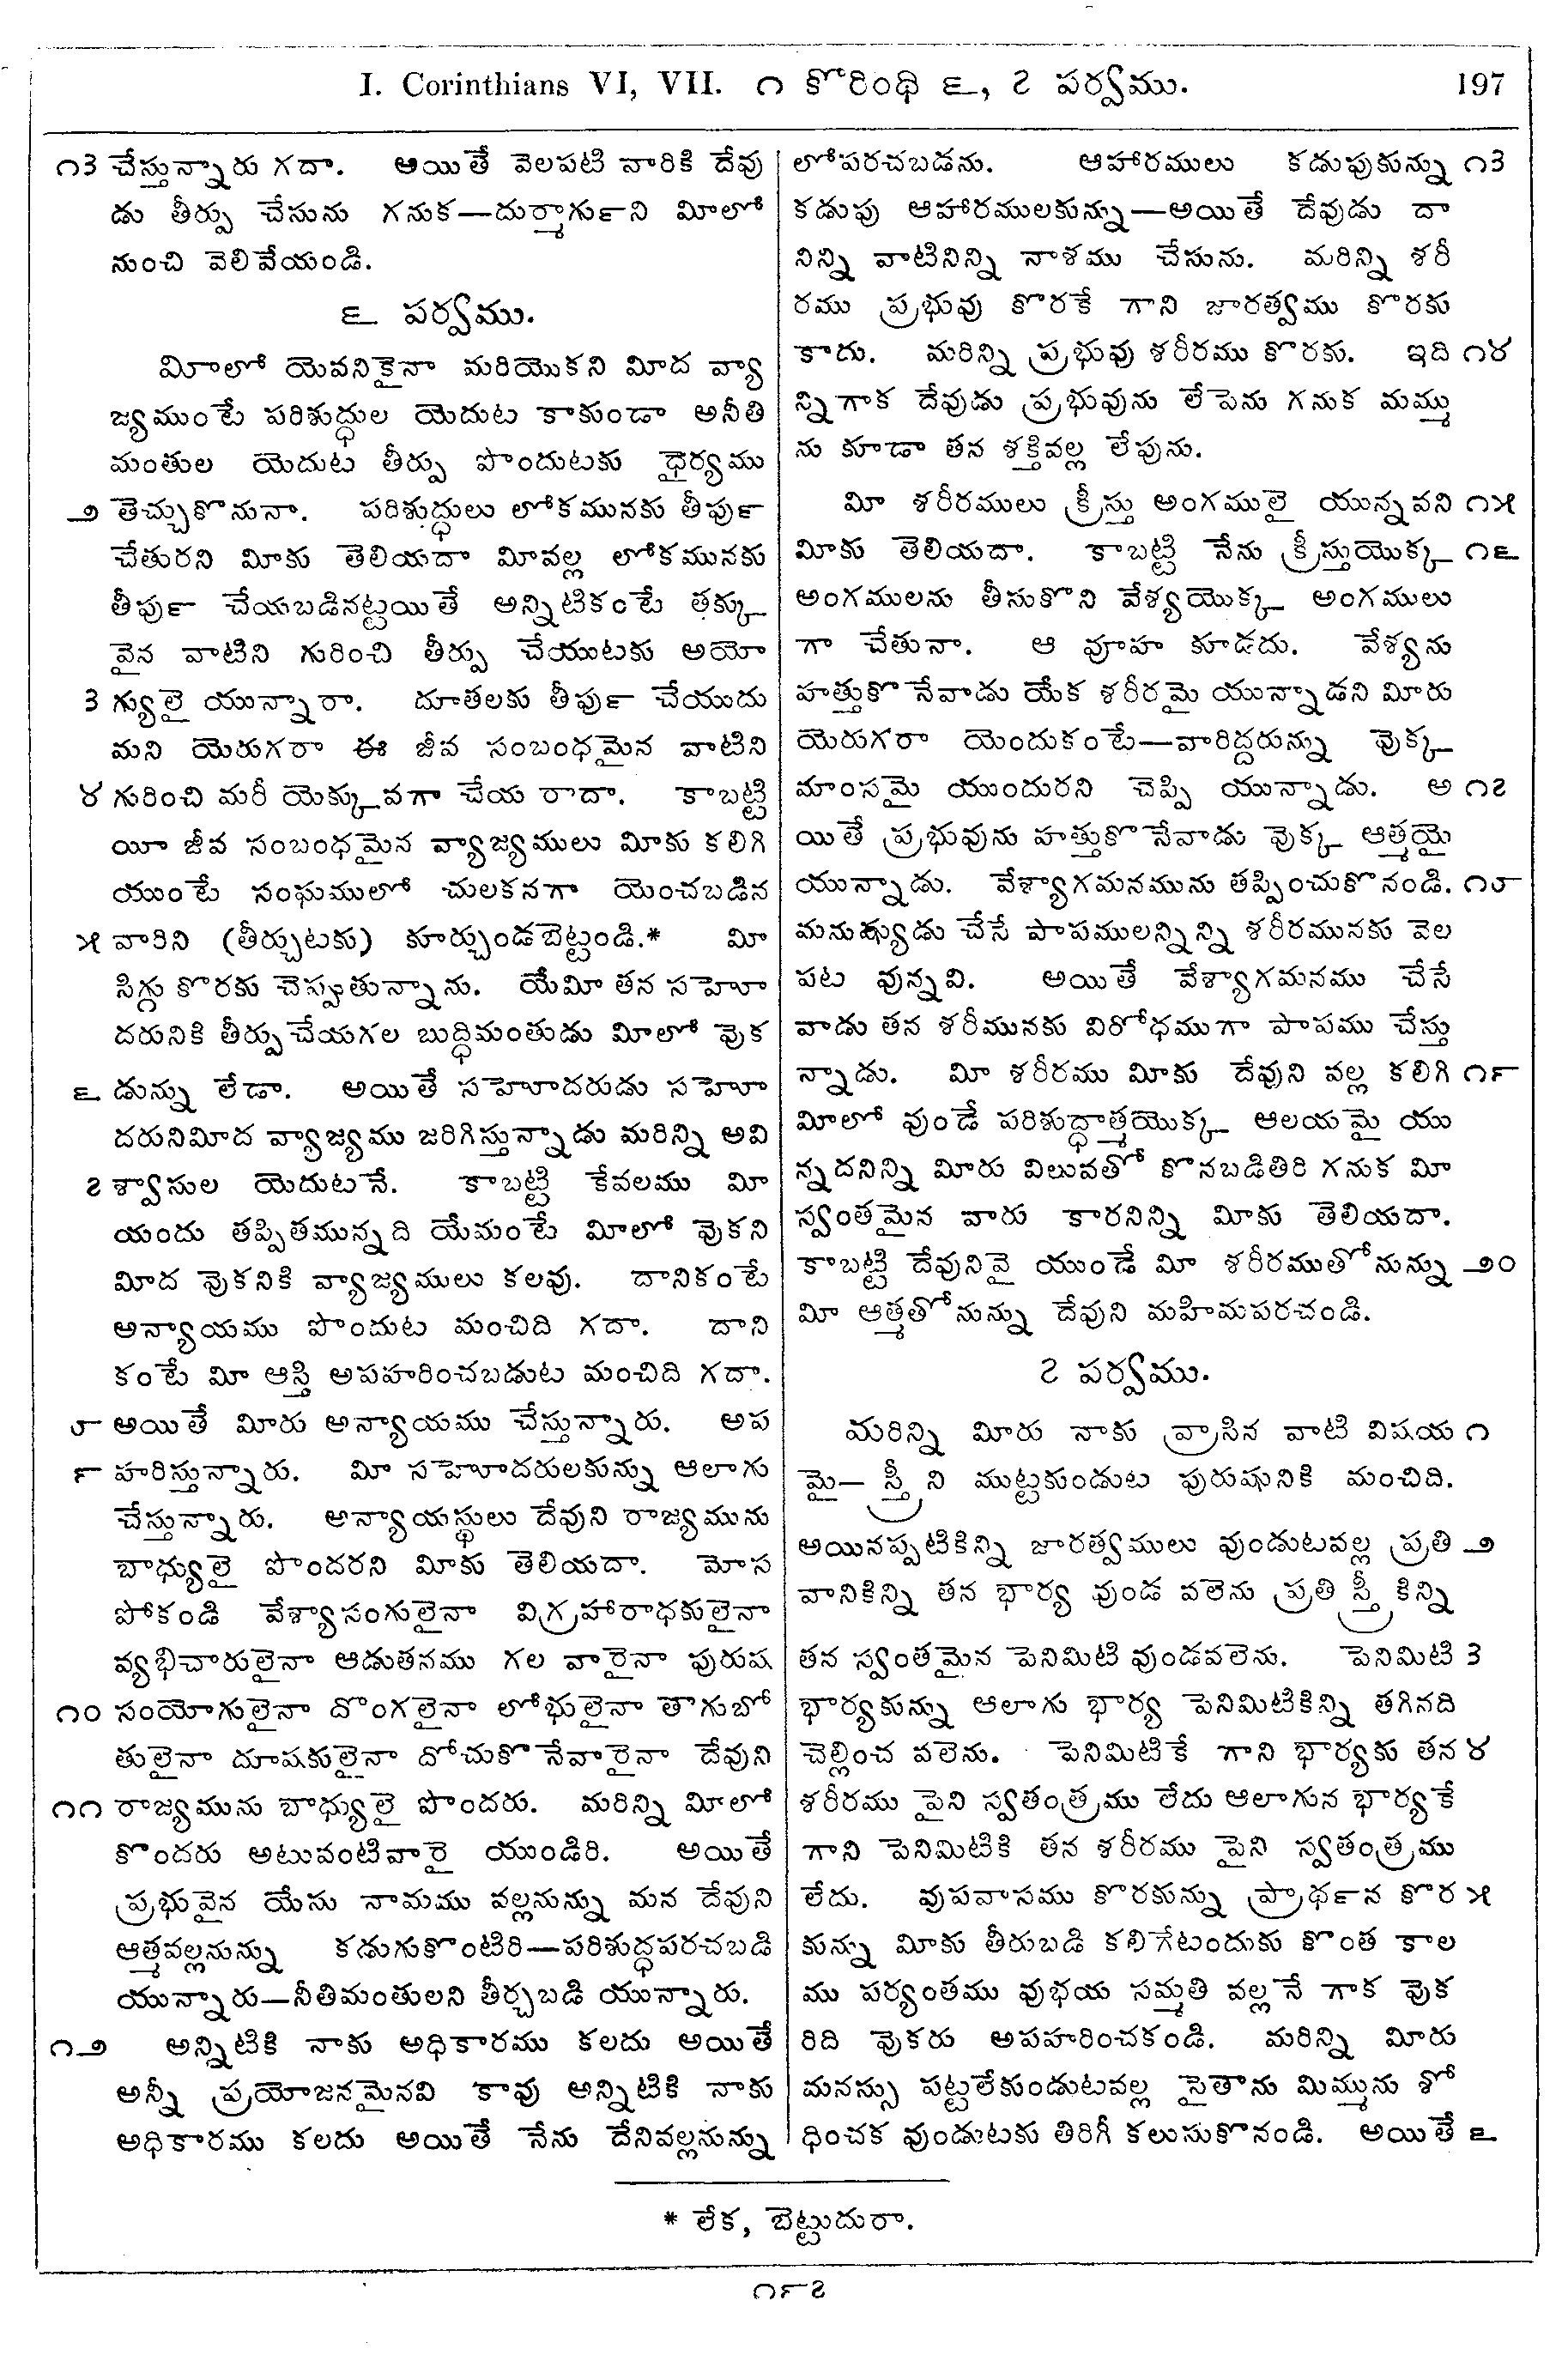 I. Corinthians VI, VII. ౧ కొరింథి ౬, ౭ పర్వము. 197
౧౩ చేస్తున్నారు గదా. ఆయితే వెలపటి వారికి దేవు
డు తీర్పు చేసును గనుక—దుర్మాగుర్ని మీలో
నుంచి వెలివేయండి.
౬ పర్వము.
మీలో యెవనికైనా మరియొకని మీద వ్యా
జ్యముంటే పరిశుద్ధుల యెదుట కాకుండా అనీతి
మంతుల యెదుట తీర్పు పొందుటకు ధైర్యము
౨ తెచ్చుకొనునా. పరిశుద్ధులు లోకమునకు తీపుర్
చేతురని మీకు తెలియదా మీవల్ల లోకమునకు
తీపుర్ చేయబడినట్టయితే అన్నిటికంటే తక్కు
వైన వాటిని గురించి తీర్పు చేయుటకు అయో
౩ గ్యులై యున్నారా. దూతలకు తీపుర్ చేయుదు
మని యెరుగరా ఈ జీవ సంబంధమైన వాటిని
౪ గురించి మరీ యెక్కువగా చేయ రాదా. కాబట్టి
యీ జీవ సంబంధమైన వ్యాజ్యములు మీకు కలిగి
యుంటే సంఘములో చులకనగా యెంచబడిన
౫ వారిని (తీర్చుటకు) కూర్చుండబెట్టండి.* మీ
సిగ్గు కొరకు చెప్పుతున్నాను. యేమీ తన సహో
దరునికి తీర్పుచేయగల బుద్ధిమంతుడు మీలో వొక
౬ డున్ను లేడా. అయితే సహోదరుడు సహో
దరునిమీద వ్యాజ్యము జరిగిస్తున్నాడు మరిన్ని అవి
౭ శ్వాసుల యెదుటనే. కాబట్టి కేవలము మీ
యందు తప్పితమున్నది యేమంటే మీలో వొకని
మీద వొకనికి వ్యాజ్యములు కలవు. దానికంటే
అన్యాయము పొందుట మంచిది గదా. దాని
కంటే మీ ఆస్తి అపహరించబడుట మంచిది గదా.
౮ అయితే మీరు అన్యాయము చేస్తున్నారు. అప
౯ హరిస్తున్నారు. మీ సహోదరులకున్ను ఆలాగు
చేస్తున్నారు. అన్యాయస్థులు దేవుని రాజ్యమును
బాధ్యులై పొందరని మీకు తెలియదా. మోస
పోకండి వేశ్యాసంగులైనా విగ్రహారాధకులైనా
వ్యభిచారులైనా ఆడుతనము గల వారైనా పురుష
౧౦ సంయోగులైనా దొంగలైనా లోభులైనా తాగుబో
తులైనా దూషకులైనా దోచుకొనేవారైనా దేవుని
౧౧ రాజ్యమును బాధ్యులై పొందరు. మరిన్ని మీలో
కొందరు అటువంటివారై యుండిరి. అయితే
ప్రభువైన యేసు నామము వల్లనున్ను మన దేవుని
ఆత్మవల్లనున్ను కడుగుకొంటిరి—పరిశుద్ధపరచబడి
యున్నారు—నీతిమంతులని తీర్చబడి యున్నారు.
౧౨ అన్నిటికి నాకు అధికారము కలదు అయితే
అన్నీ ప్రయోజనమైనవి కావు అన్నిటికి నాకు
అధికారము కలదు అయితే నేను దేనివల్లనున్ను
లోపరచబడను. ఆహారములు కడుపుకున్ను ౧౩
కడుపు ఆహారములకున్ను—అయితే దేవుడు దా
నిన్ని వాటినిన్ని నాశము చేసును. మరిన్ని శరీ
రము ప్రభువు కొరకే గాని జారత్వము కొరకు
కాదు. మరిన్ని ప్రభువు శరీరము కొరకు. ఇది ౧౪
న్నిగాక దేవుడు ప్రభువును లేపెను గనుక మమ్ము
ను కూడా తన శక్తివల్ల లేపును.
మీ శరీరములు క్రీస్తు అంగములై యున్నవని ౧౫
మీకు తెలియదా. కాబట్టి నేను క్రీస్తుయొక్క ౧౬
అంగములను తీసుకొని వేశ్యయొక్క అంగములు
గా చేతునా. ఆ వూహ కూడదు. వేశ్యను
హత్తుకొనేవాడు యేక శరీరమై యున్నాడని మీరు
యెరుగరా యెందుకంటే—వారిద్దరున్ను వొక్క
మాంసమై యుందురని చెప్పి యున్నాడు. అ ౧౭
యితే ప్రభువును హత్తుకొనేవాడు వొక్క ఆత్మయై
యున్నాడు. వేశ్యాగమనమును తప్పించుకొనండి. ౧౮
మనుష్యుడు చేసే పాపములన్నిన్ని శరీరమునకు వెల
పట వున్నవి. అయితే వేశ్యాగమనము చేసే
వాడు తన శరీమునకు విరోధముగా పాపము చేస్తు
న్నాడు. మీ శరీరము మీకు దేవుని వల్ల కలిగి ౧౯
మీలో వుండే పరిశుద్ధాత్మయొక్క ఆలయమై యు
న్నదనిన్ని మీరు విలువతో కొనబడితిరి గనుక మీ
స్వంతమైన వారు కారనిన్ని మీకు తెలియదా.
కాబట్టి దేవునివై యుండే మీ శరీరముతోనున్ను ౨౦
మీ ఆత్మతోనున్ను దేవుని మహిమపరచండి.
౭ పర్వము.
మరిన్ని మీరు నాకు వ్రాసిన వాటి విషయ ౧
మై— స్త్రీని ముట్టకుండుట పురుషునికి మంచిది.
అయినప్పటికిన్ని జారత్వములు వుండుటవల్ల ప్రతి ౨
వానికిన్ని తన భార్య వుండ వలెను ప్రతి స్త్రీకిన్ని
తన స్వంతమైన పెనిమిటి వుండవలెను. పెనిమిటి ౩
భార్యకున్ను ఆలాగు భార్య పెనిమిటికిన్ని తగినది
చెల్లించ వలెను. పెనిమిటికే గాని భార్యకు తన ౪
శరీరము పైని స్వతంత్రము లేదు ఆలాగున భార్యకే
గాని పెనిమిటికి తన శరీరము పైని స్వతంత్రము
లేదు. వుపవాసము కొరకున్ను ప్రాథర్న కొర ౫
కున్ను మీకు తీరుబడి కలిగేటందుకు కొంత కాల
ము పర్యంతము వుభయ సమ్మతి వల్లనే గాక వొక
రిది వొకరు అపహరించకండి. మరిన్ని మీరు
మనస్సు పట్టలేకుండుటవల్ల సైతాను మిమ్మును శో
ధించక వుండుటకు తిరిగీ కలుసుకొనండి. అయితే ౬
* లేక, బెట్టుదురా.
౧౯౭